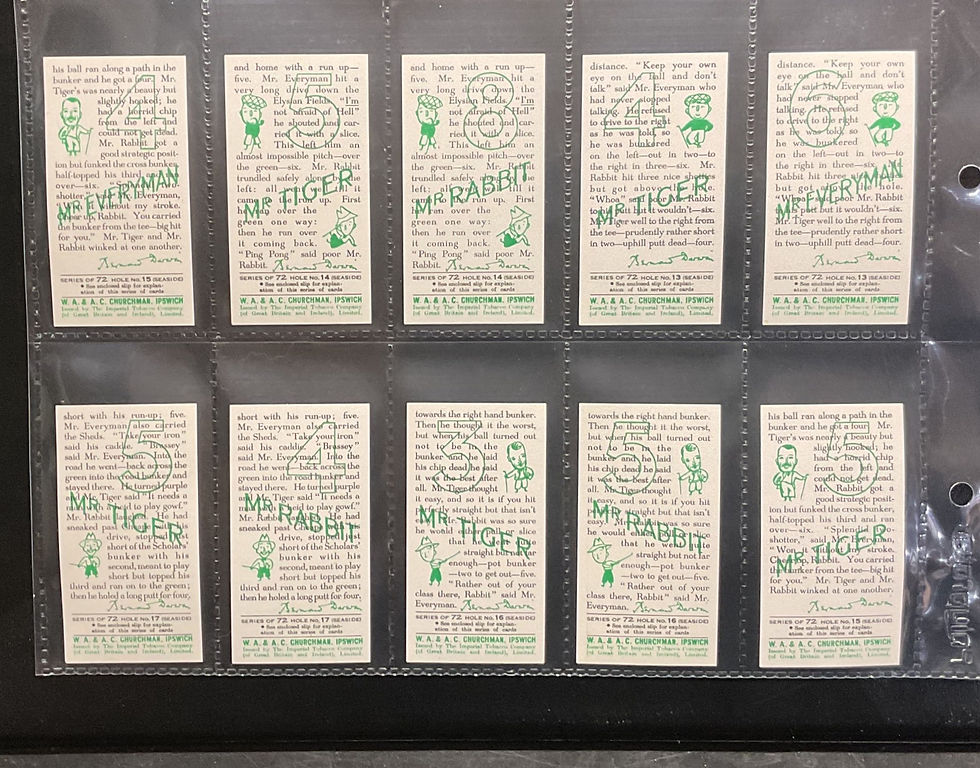 his ball ran along a path in the
bunker and he got a four. Mr.
Tiger's was nearly a beauty but
slightly hooked; he
had a horrid chip
from the left and
could not get dead.
Mr. Rabbit got a
good strategic posit-
ion but funked the cross bunker,
half-topped his third
over—six.
shotter,
without my stroke.
poor
Rabbit. You carried
the bunker from the tee—big hit
for you." Mr. Tiger and Mr.
Rabbit winked at one another.
MR EVERYMAN
Bernard Darwin
SERIES OF 72 HOLE No. 15 (SEASIDE)
* See enclosed slip for explan-
ation of this series of cards
W. A. & A. C. CHURCHMAN, IPSWICH
Issued by The Imperial Tobacco Company
(of Great Britain and Ireland), Limited.
and home with a run up—
five. Mr. Everyman hit a
very long drive down the
Elysian Fields. "I'm
not afraid of Hell"
he shouted and car-
ried it with a slice.
This left him an
almost impossible pitch—over
the green—six. Mr. Rabbit
trundled safely along
left; all
up. First
over the
green one way:
then he ran over
it coming back.
"Ping Pong" said poor Mr.
Rabbit.
5
MR TIGER
Bernard Darwin
SERIES OF 72 HOLE No. 14 (SEASIDE)
* See enclosed slip for explan-
ation of this series of cards
W. A. & A. C. CHURCHMAN, IPSWICH
Issued by The Imperial Tobacco Company
(of Great Britain and Ireland), Limited.
and home with a run up—
five. Mr. Everyman hit a
very long drive down the
Elysian Fields. "I'm
not afraid of Hell"
he shouted and car-
ried it with a slice.
This left him an
almost impossible pitch—over
the green—six. Mr. Rabbit
trundled safely along
left;
up. First
ran over the
green one way:
then he ran over
it coming back.
"Ping Pong" said poor Mr.
Rabbit.
8
MR RABBIT
Bernard Darwin
SERIES OF 72 HOLE No. 14 (SEASIDE)
* See enclosed slip for explan-
ation of this series of cards
W. A. & A. C. CHURCHMAN, IPSWICH
Issued by The Imperial Tobacco Company
(of Great Britain and Ireland), Limited.
distance. "Keep your own
eye on the ball and don't
talk" said Mr. Everyman who
had never stopped
talking. He refused
to drive to the right
as he was told, so
he was bunkered
on the left—out in two—to
the right in three—six. Mr.
Rabbit hit three nice shots
but got above the hole.
"Whoa" said poor Mr. Rabbit
but it wouldn't—six.
Mr. Tiger well to the right from
the tee—prudently rather short
in two—uphill putt dead—four.
4
MR TIGER
Bernard Darwin
SERIES OF 72 HOLE No. 13 (SEASIDE)
* See enclosed slip for explan-
ation of this series of cards
W. A. & A. C. CHURCHMAN, IPSWICH
Issued by The Imperial Tobacco Company
(of Great Britain and Ireland), Limited.
distance. "Keep your own
eye on the ball and don't
talk" said Mr. Everyman who
had never stopped
talking. He refused
to drive to the right
as he was told, so
he was bunkered
on the left—out in two—to
the right in three—six. Mr.
Rabbit hit three nice shots
but got above the hole.
"Whoa" said poor Mr. Rabbit
but it wouldn't—six.
Mr. Tiger well to the right from
the tee—prudently rather short
in two—uphill putt dead—four.
MR EVERYMAN
Bernard Darwin
SERIES OF 72 HOLE No. 13 (SEASIDE)
* See enclosed slip for explan-
ation of this series of cards
W. A. & A. C. CHURCHMAN, IPSWICH
Issued by The Imperial Tobacco Company
(of Great Britain and Ireland), Limited.
short with his run-up; five.
Mr. Everyman also carried
the Sheds. "Take your iron"
said his caddie. "Brassey"
said Mr. Everyman. Into the
road he went—back across the
green into the road bunker and
stayed there. He turned purple
Mr. Tiger said "It needs a
to play gowf."
Mr. Rabbit laughed. He had
sneaked past
drive, stop
short of the Scholars'
bunker with his
second, meant to play
short but topped his
third and ran on to the green;
then he holed a long putt for four,
5
MR. TIGER
Bernard Darwin
SERIES OF 72 HOLE No. 17 (SEASIDE)
* See enclosed slip for explan-
ation of this series of cards
W. A. & A. C. CHURCHMAN, IPSWICH
Issued by The Imperial Tobacco Company
(of Great Britain and Ireland), Limited.
short with his run-up; five.
Mr. Everyman also carried
the Sheds. "Take your iron"
said his caddie. "Brassey"
said Mr. Everyman. Into the
road he went—back across the
green into the road bunker and
stayed there. He turned purple
Mr. Tiger said "It needs a
to play gowf."
Mr. Rabbit laughed. He had
sneaked past
drive, stop
short of the Scholars'
bunker with his
second, meant to play
short but topped his
third and ran on to the green;
then he holed a long putt for four,
4
MR. RABBIT
Bernard Darwin
SERIES OF 72 HOLE No. 17 (SEASIDE)
* See enclosed slip for explan-
ation of this series of cards
W. A. & A. C. CHURCHMAN, IPSWICH
Issued by The Imperial Tobacco Company
(of Great Britain and Ireland), Limited.
towards the right hand bunker.
Then he thought it the worst,
but when his ball turned out
not to be in the
bunker and he laid
his chip dead he said
it was the best after
all. Mr. Tiger thought
it easy, and so it is if you hit
straight but that isn't
easy. Mr. Rabbit was so sure
he would
that he would
straight but not far
enough—pot bunker
—two to get out—five.
"Rather out of your
class there, Rabbit" said Mr.
Everyman.
3
MR. TIGER
Bernard Darwin
SERIES OF 72 HOLE No. 16 (SEASIDE)
* See enclosed slip for explan-
ation of this series of cards
W. A. & A. C. CHURCHMAN, IPSWICH
Issued by The Imperial Tobacco Company
(of Great Britain and Ireland), Limited.
towards the right hand bunker.
Then he thought it the worst,
but when his ball turned out
not to be in the
bunker and he laid
his chip dead he said
it was the best after
all. Mr. Tiger thought
it easy, and so it is if you hit
straight but that isn't
easy. Mr. Rabbit was so sure
he would
that he would
straight but not far
enough—pot bunker
—two to get out—five.
"Rather out of your
class there, Rabbit" said Mr.
Everyman.
5
MR. RABBIT
Bernard Darwin
SERIES OF 72 HOLE No. 16 (SEASIDE)
* See enclosed slip for explan-
ation of this series of cards
W. A. & A. C. CHURCHMAN, IPSWICH
Issued by The Imperial Tobacco Company
(of Great Britain and Ireland), Limited.
his ball ran along a path in the
bunker and he got a four. Mr.
Tiger's was nearly a beauty but
slightly hooked; he
had a horrid chip
from the left and
could not get dead.
Mr. Rabbit got a
good strategic posit-
ion but funked the cross bunker,
half-topped his third and ran
over—six. "Splendid
shotter," said Mr. Everyman,
"Won, without my stroke.
Rabbit. You carried
the bunker from the tee—big hit
for you." Mr. Tiger and Mr.
Rabbit winked at one another.
5
MR. TIGER
Bernard Darwin
SERIES OF 72 HOLE No. 15 (SEASIDE)
* See enclosed slip for explan-
ation of this series of cards
W. A. & A. C. CHURCHMAN, IPSWICH
Issued by The Imperial Tobacco Company
(of Great Britain and Ireland), Limited.